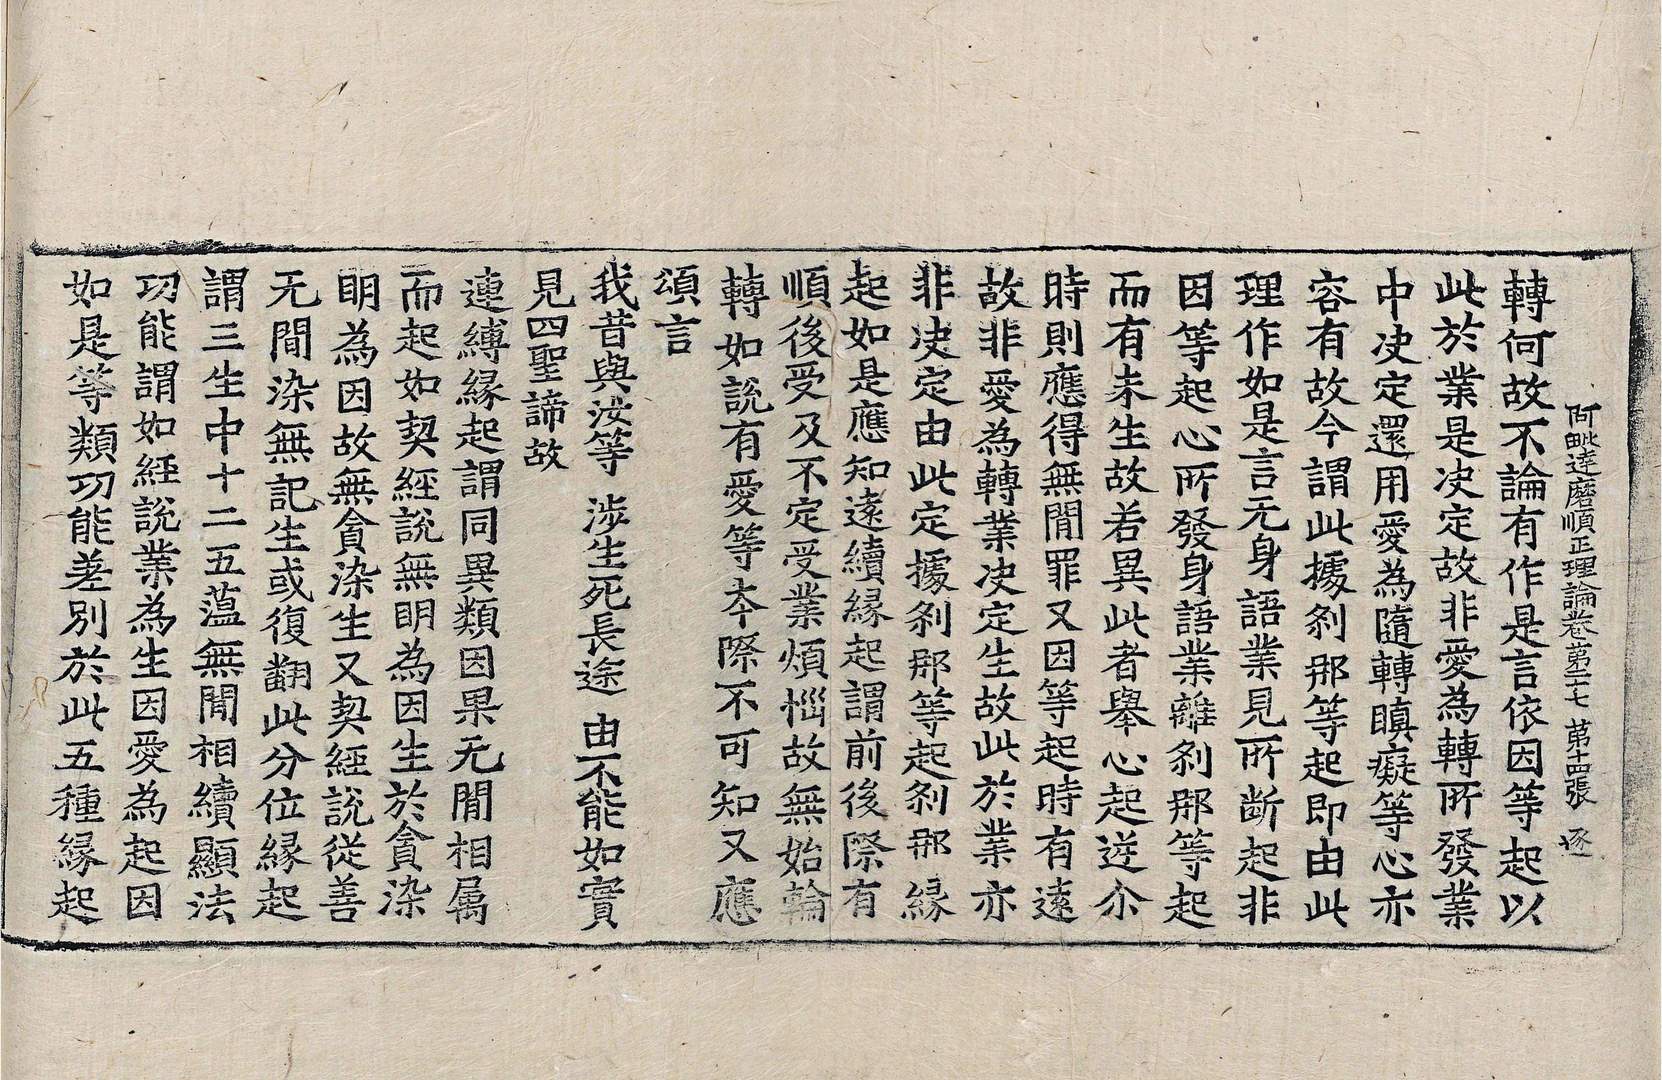 阿毗達磨順正理論卷第二十七 第十四張 逐
轉何故不論有作是言依因等起以
此於業是决定故非愛為轉所發業
中决定還用愛為隨轉瞋癡等心亦
容有故今謂此據剎那等起即由此
理作如是言无身語業見所斷起非
因等起心所發身語業離剎那等起
而有未生故若異此者舉心起逆尒
時則應得無間罪又因等起時有遠
故非愛為轉業决定生故此於業亦
非决定由此定據剎那等起剎那緣
起如是應知遠續緣起謂前後際有
順後受及不定受業煩惱故無始輪
轉如說有愛等夲際不可知又應
頌言
我昔與汝等 涉生死長途 由不能如實
見四聖諦故
連縛緣起謂同異類因果无間相属
而起如契經說無明為因生於貪染
明為因故無貪染生又契經說從善
无間染無記生或復翻此分位緣起
謂三生中十二五藴無間相續顯法
功能謂如經說業為生因愛為起因
如是等類功能差別於此五種緣起